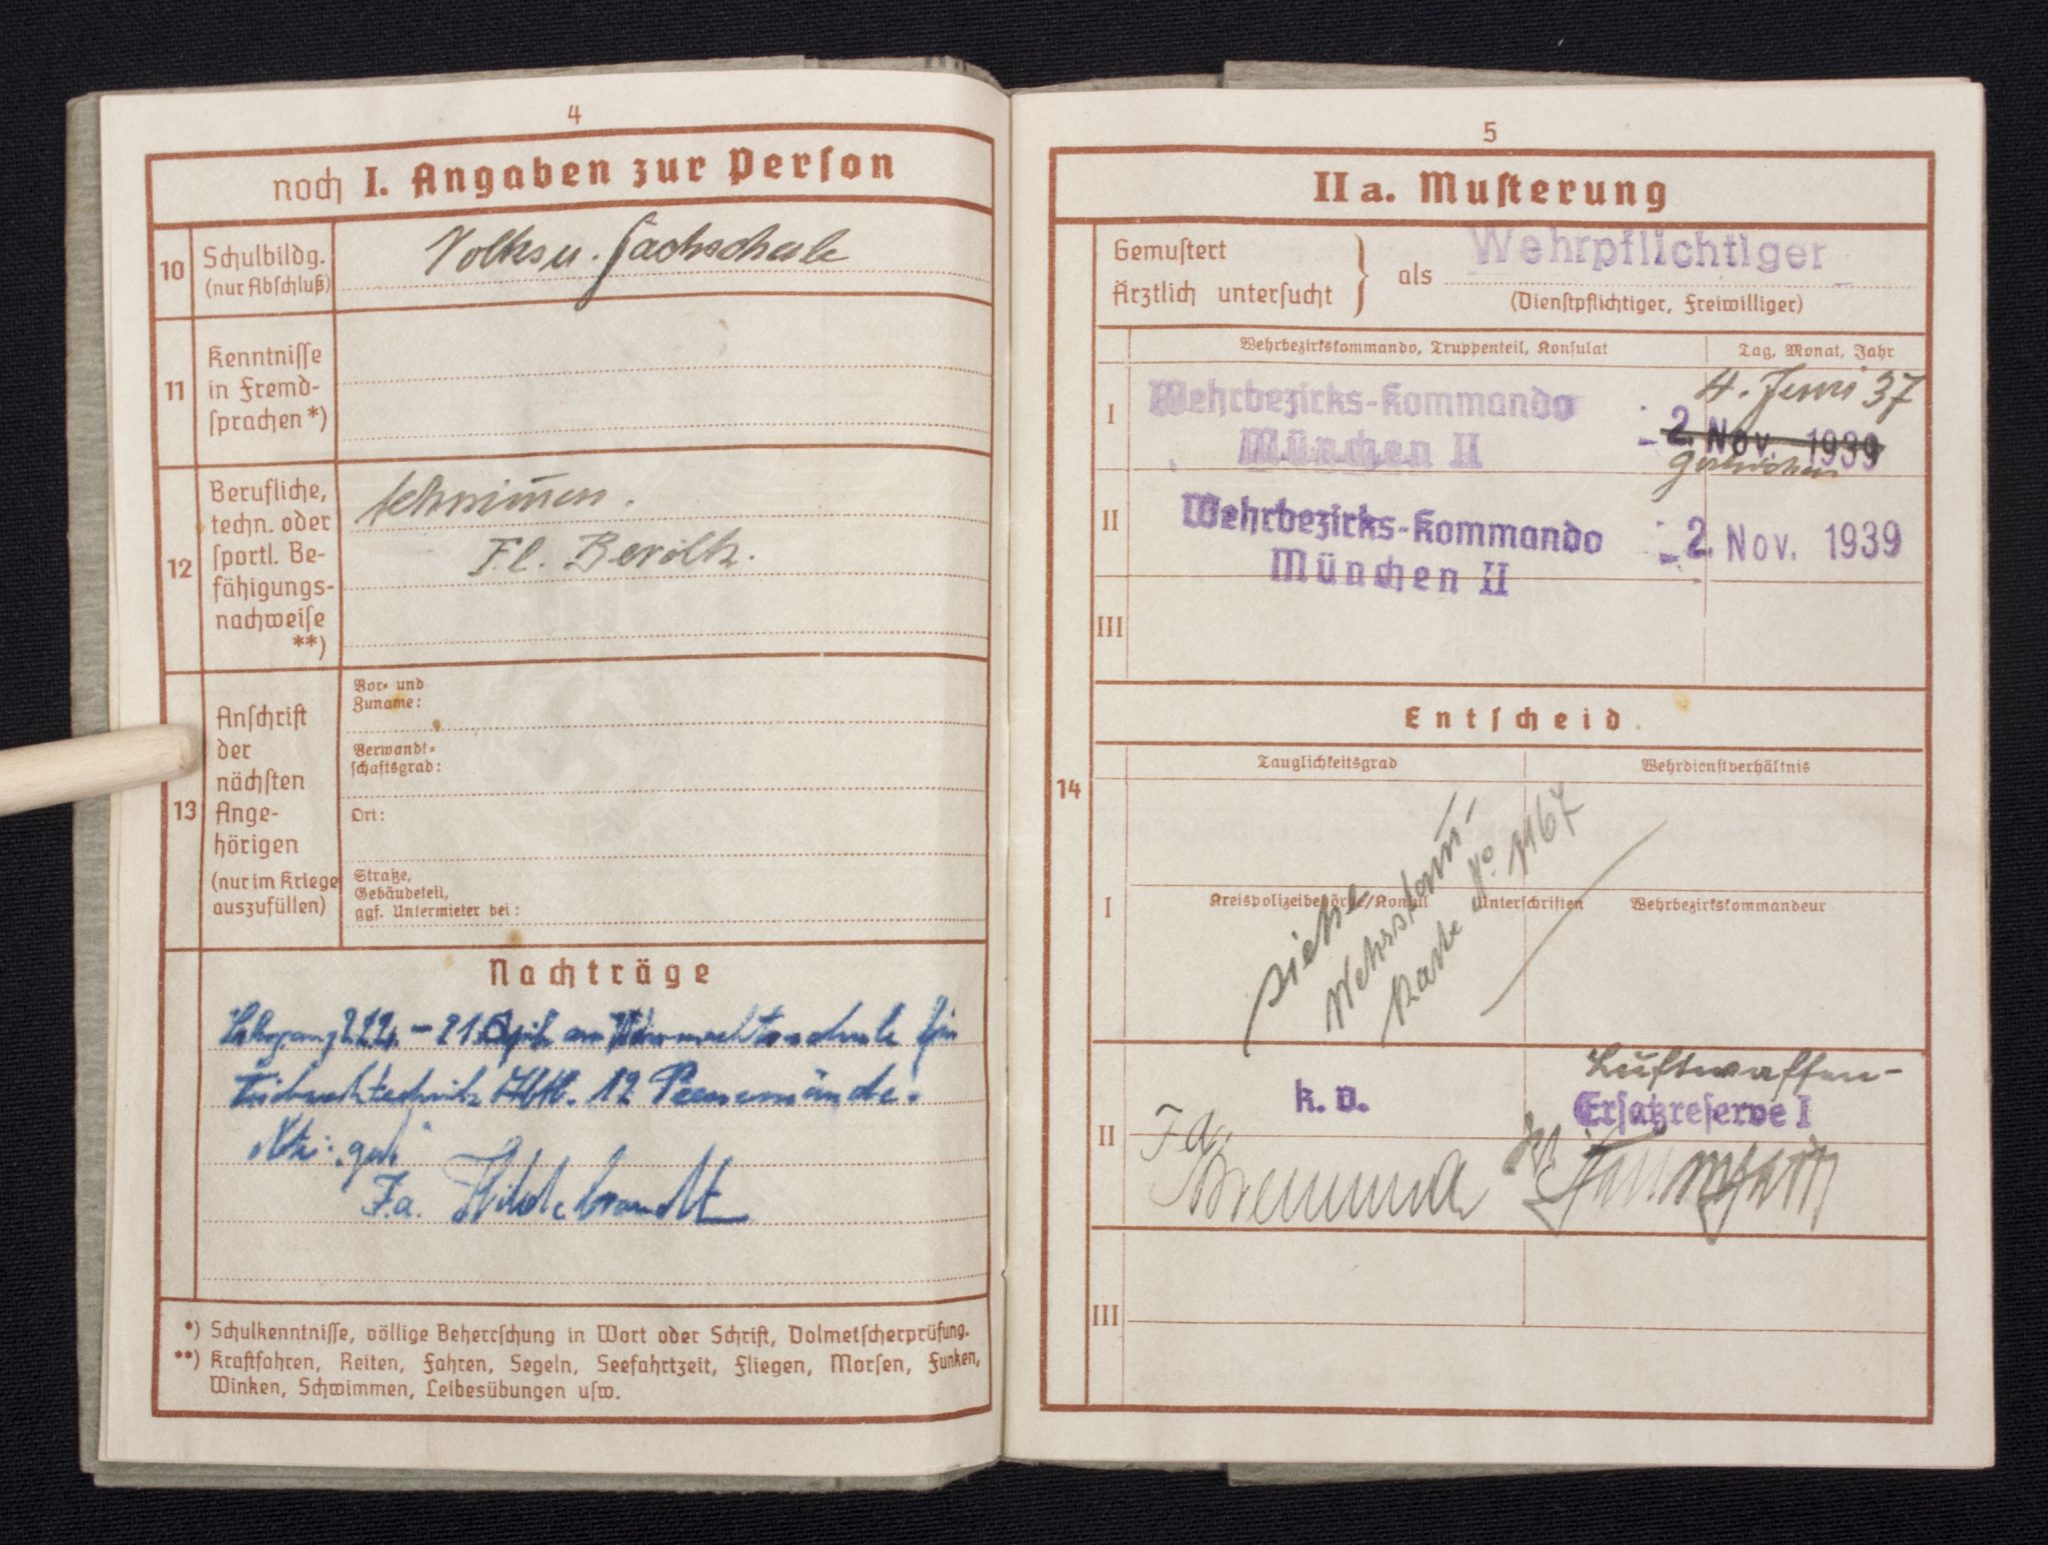 4
noch I. Angaben zur Person
10
Schulbildg.
(nur Abschluß)
Volks u. Fachschule
11
Kenntnisse
in Fremd-
sprachen *)
12
Berufliche,
techn. oder
sportl. Be-
fähigungs-
nachweise
**)
schwimmen.
F.l.
13
Anschrift
der
nächsten
Ange-
hörigen
(nur im Kriege
auszufüllen)
Vor- und
Zuname:
Verwandt-
schaftsgrad:
Ort:
Straße,
Gebäudeteil,
ggf. Untermieter bei:
Nachträge
Lehrgang - 21. April am Wehrmachtsschule für
Abtl. 12 Peenemünde.
F.a. Hildebrandt
*) Schulkenntnisse, völlige Beherrschung in Wort oder Schrift, Dolmetscherprüfung.
**) Kraftfahren, Reiten, Fahren, Segeln, Seefahrtzeit, Fliegen, Morsen, Funken,
Winken, Schwimmen, Leibesübungen usw.
5
II a. Musterung
14
Gemustert
Ärztlich untersucht
als
Wehrpflichtiger
(Dienstpflichtiger, Freiwilliger)
Wehrbezirkskommando, Truppenteil, Konsulat
Tag, Monat, Jahr
I
Wehrbezirks-Kommando
München II
4. Juni 37
2. Nov. 1939
gestrichen
II
Wehrbezirks-Kommando
München II
2. Nov. 1939
III
Entscheid
Tauglichkeitsgrad
Wehrdienstverhältnis
I
siehe
Wehrstamm-
Karte No. 1167
Kreispolizeibehörde/Konsul
Unterschriften
Wehrbezirkskommandeur
II
k. v.
Luftwaffen-
Ersatzreserve I
III